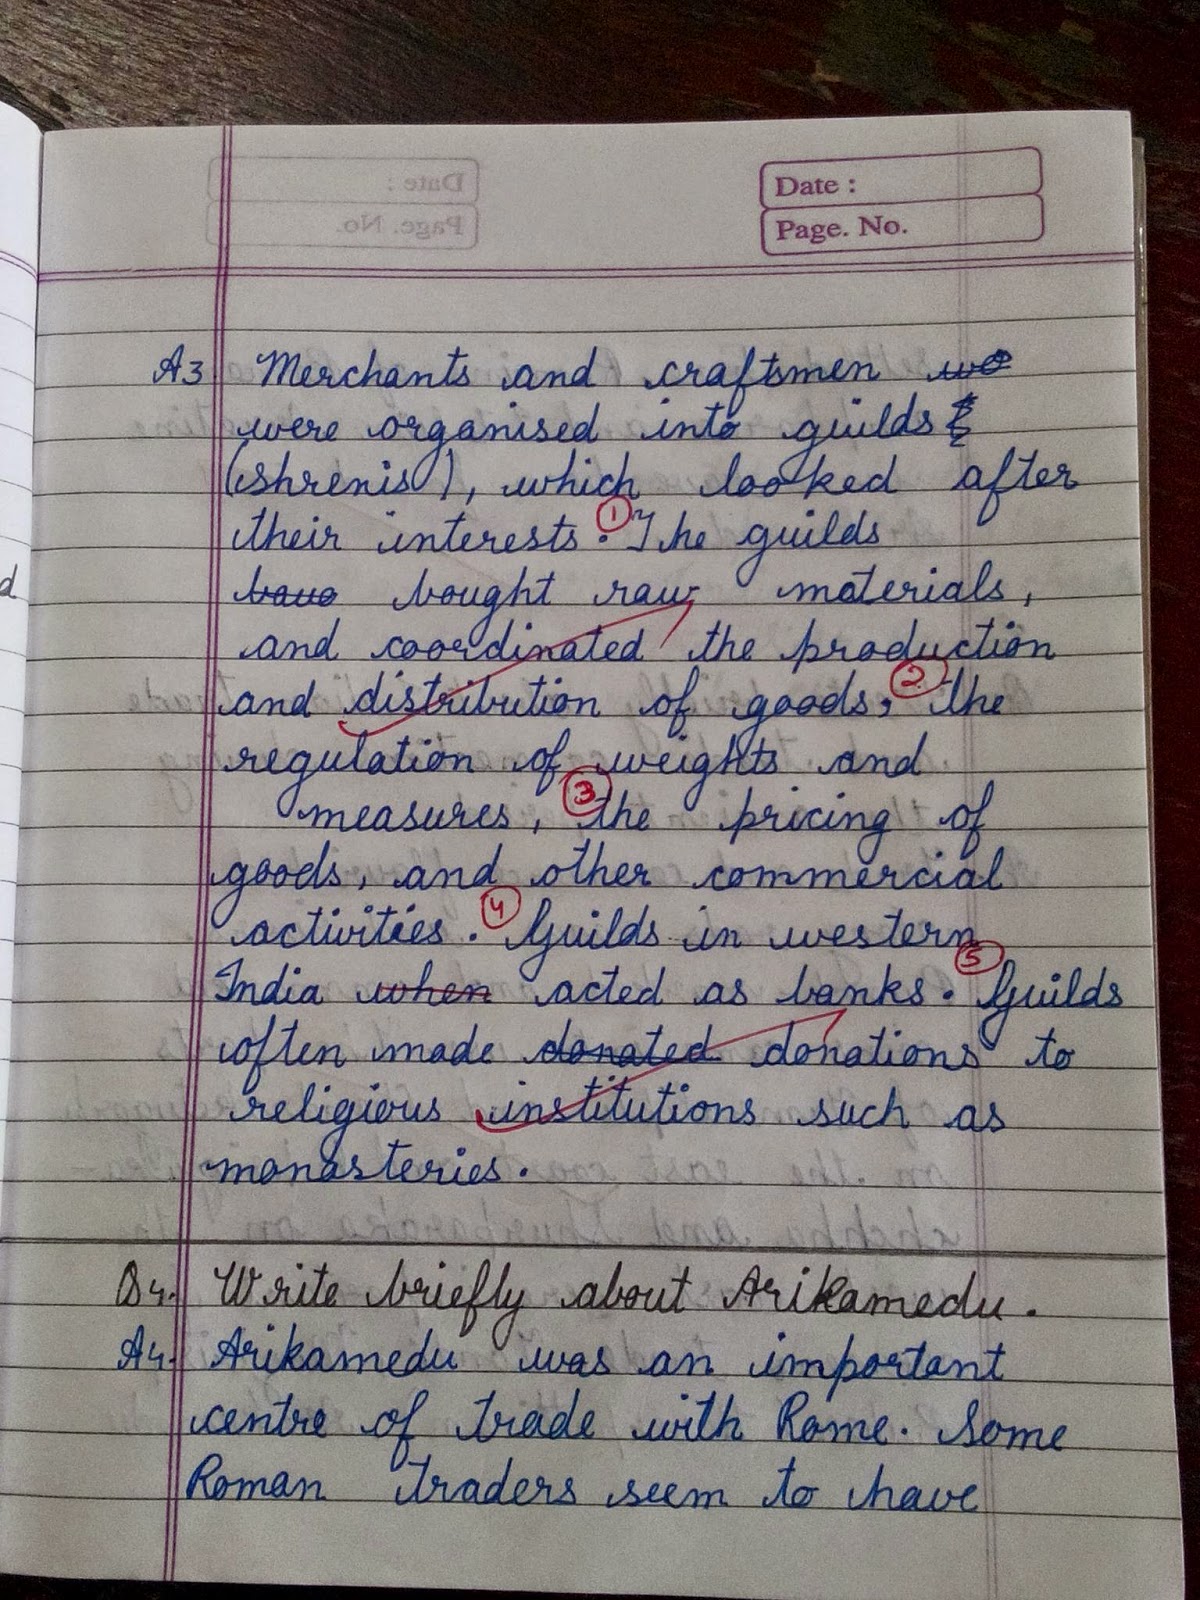 Date :
Page. No.
A3 Merchants and craftsmen
were organised into guilds
(shrenis), which looked after
their interests. ① The guilds
bought raw materials,
and coordinated the production
and distribution of goods, ② the
regulation of weights and
measures, ③ the pricing of
goods, and other commercial
activities. ④ Guilds in western
India when acted as banks. ⑤ Guilds
often made donated donations to
religious institutions such as
monasteries.
Q4. Write briefly about Arikamedu.
A4. Arikamedu was an important
centre of trade with Rome. Some
Roman traders seem to have